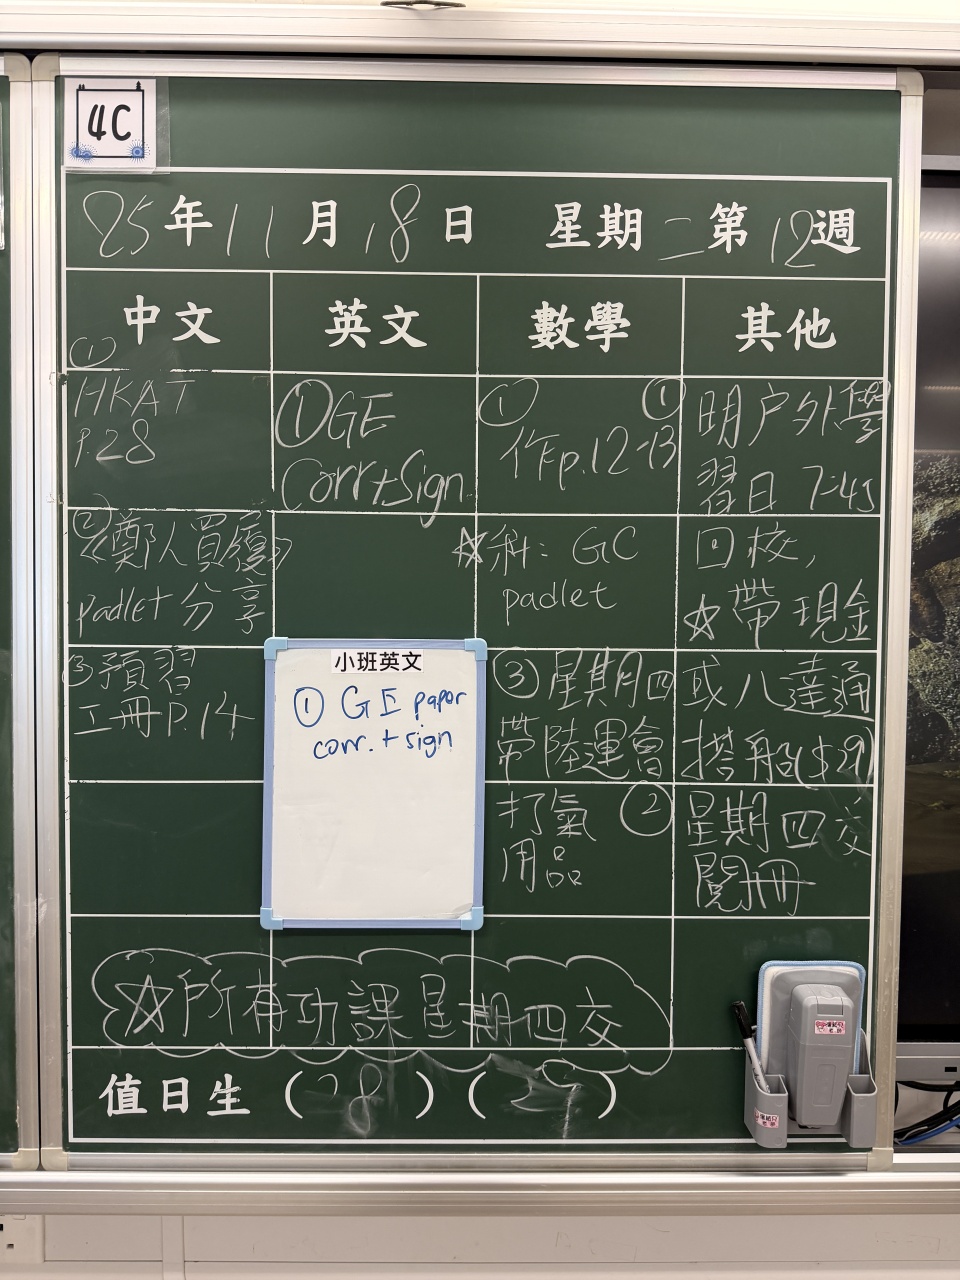 4C
25年11月18日 星期二第12週
中文
英文
數學
其他
①
HKAT
P.28
②《鄭人買履》
padlet分享
③預習
工冊P.14
①GE
Corr+Sign
小班英文
① GE paper
corr.+sign
①
作p.12-13
☆科：GC
padlet
③星期四
帶陸運會
打氣
用品
①明戶外學
習日 7:45
回校，
☆帶現金
或八達通
搭船($29)
②星期四交
閱冊
☆所有功課星期四交
值日生（28）（29）